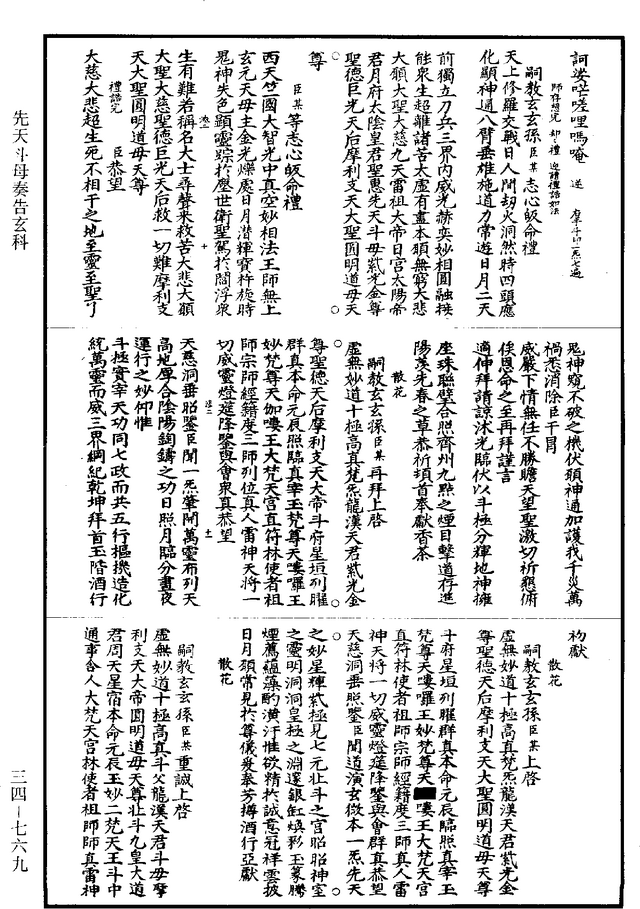 訶娑㗖嗟哩嗎唵　迷　摩斗印一炁七遍
師存想完却行禮迎請禮誥如法
嗣教玄玄孫臣某志心皈命禮
天上修羅交戰日人間劫火洞然時四頭應
化顯神通八臂垂雄施道力常遊日月二天
前獨立刀兵三界內威光赫奕妙相圓融拔
能眾生超離諸苦太虛有盡本願無窮大悲
大願大聖大慈九天雷祖大帝日宮太陽帝
君月府太陰皇君聖德先天斗母紫光金尊
聖德巨光天后摩利支天大聖圓明道母天
尊
臣某等志心皈命禮
西天竺國大智光中真空妙相法王師無上
玄元天母主金光爍處日月潛輝寶杵旋時
鬼神失色顯靈踪於塵世衛聖駕於閻浮眾
生有難若稱名大士尋聲來救苦大悲大願
大聖大慈聖德巨光天后救一切難摩利支
天大聖圓明道母天尊
禮誥完　臣恭望
大慈大悲超生死不相干之地至靈至聖了
鬼神窺不破之機伏願神通加護我千災萬
禍悉消除臣干冒
威嚴下情無任不勝瞻天望聖激切祈懇俯
俟恩命之至再拜謹言
適伸拜請諒沐光臨伏以斗極分輝地神擁
座珠聯璧合照齊州九點之煙目擊道存進
陽羨先春之草恭祈頓首奉獻香茶
散花
嗣教玄玄孫臣某再拜上啓
虛無妙道十極高真梵炁龍漢天君紫光金
尊聖德天后摩利支天大帝斗府星垣列曜
群真本命元辰照臨真宰玉梵尊天嘍囉王
妙梵尊天如嘍王大梵天宮直符林使者祖
師宗師經籍度三師列位真人雷神天將一
切威靈燈筵降鑒與會眾真恭望
天慈洞垂昭鑒臣聞一炁肇開萬靈布列天
高地厚合陰陽鈎鑄之功日照月臨分晝夜
運行之妙仰惟
斗極實宰天功同七政而共五行樞機造化
統萬靈而威三界綱紀乾坤拜首玉階酒行
初獻
散花
嗣教玄玄孫臣某上啓
虛無妙道十極高真梵炁龍漢天君紫光金
尊聖德天后摩利支天大聖圓明道母天尊
斗府星垣列曜群真本命元辰臨照真宰玉
梵尊天嘍囉王妙梵尊天嘍王大梵天宮
直符林使者祖師宗師經籍度三師真人雷
神天將一切威靈燈筵降鑒與會群真恭望
天慈洞垂照鑒臣聞道演玄微本一炁先天
之妙星輝紫極見七元北斗之宮昭昭神室
之靈明洞洞皇極之淵邃銀缸煥彩玉篆騰
煙薦蘊藻酌潢汙惟欲精於誠意冠祥雲披
日月頻常見於尊儀爰奏芳摶酒行亞獻
散花
嗣教玄玄孫臣某重誠上啓
虛無妙道十極高真斗父龍漢天君斗母摩
利支天大帝圓明道母天尊北斗九皇大道
君周天星宿本命元辰玉妙二梵天王斗中
通事舍人大梵天宮林使者祖師師真雷神
先天斗母奏告玄科
三四—七六九